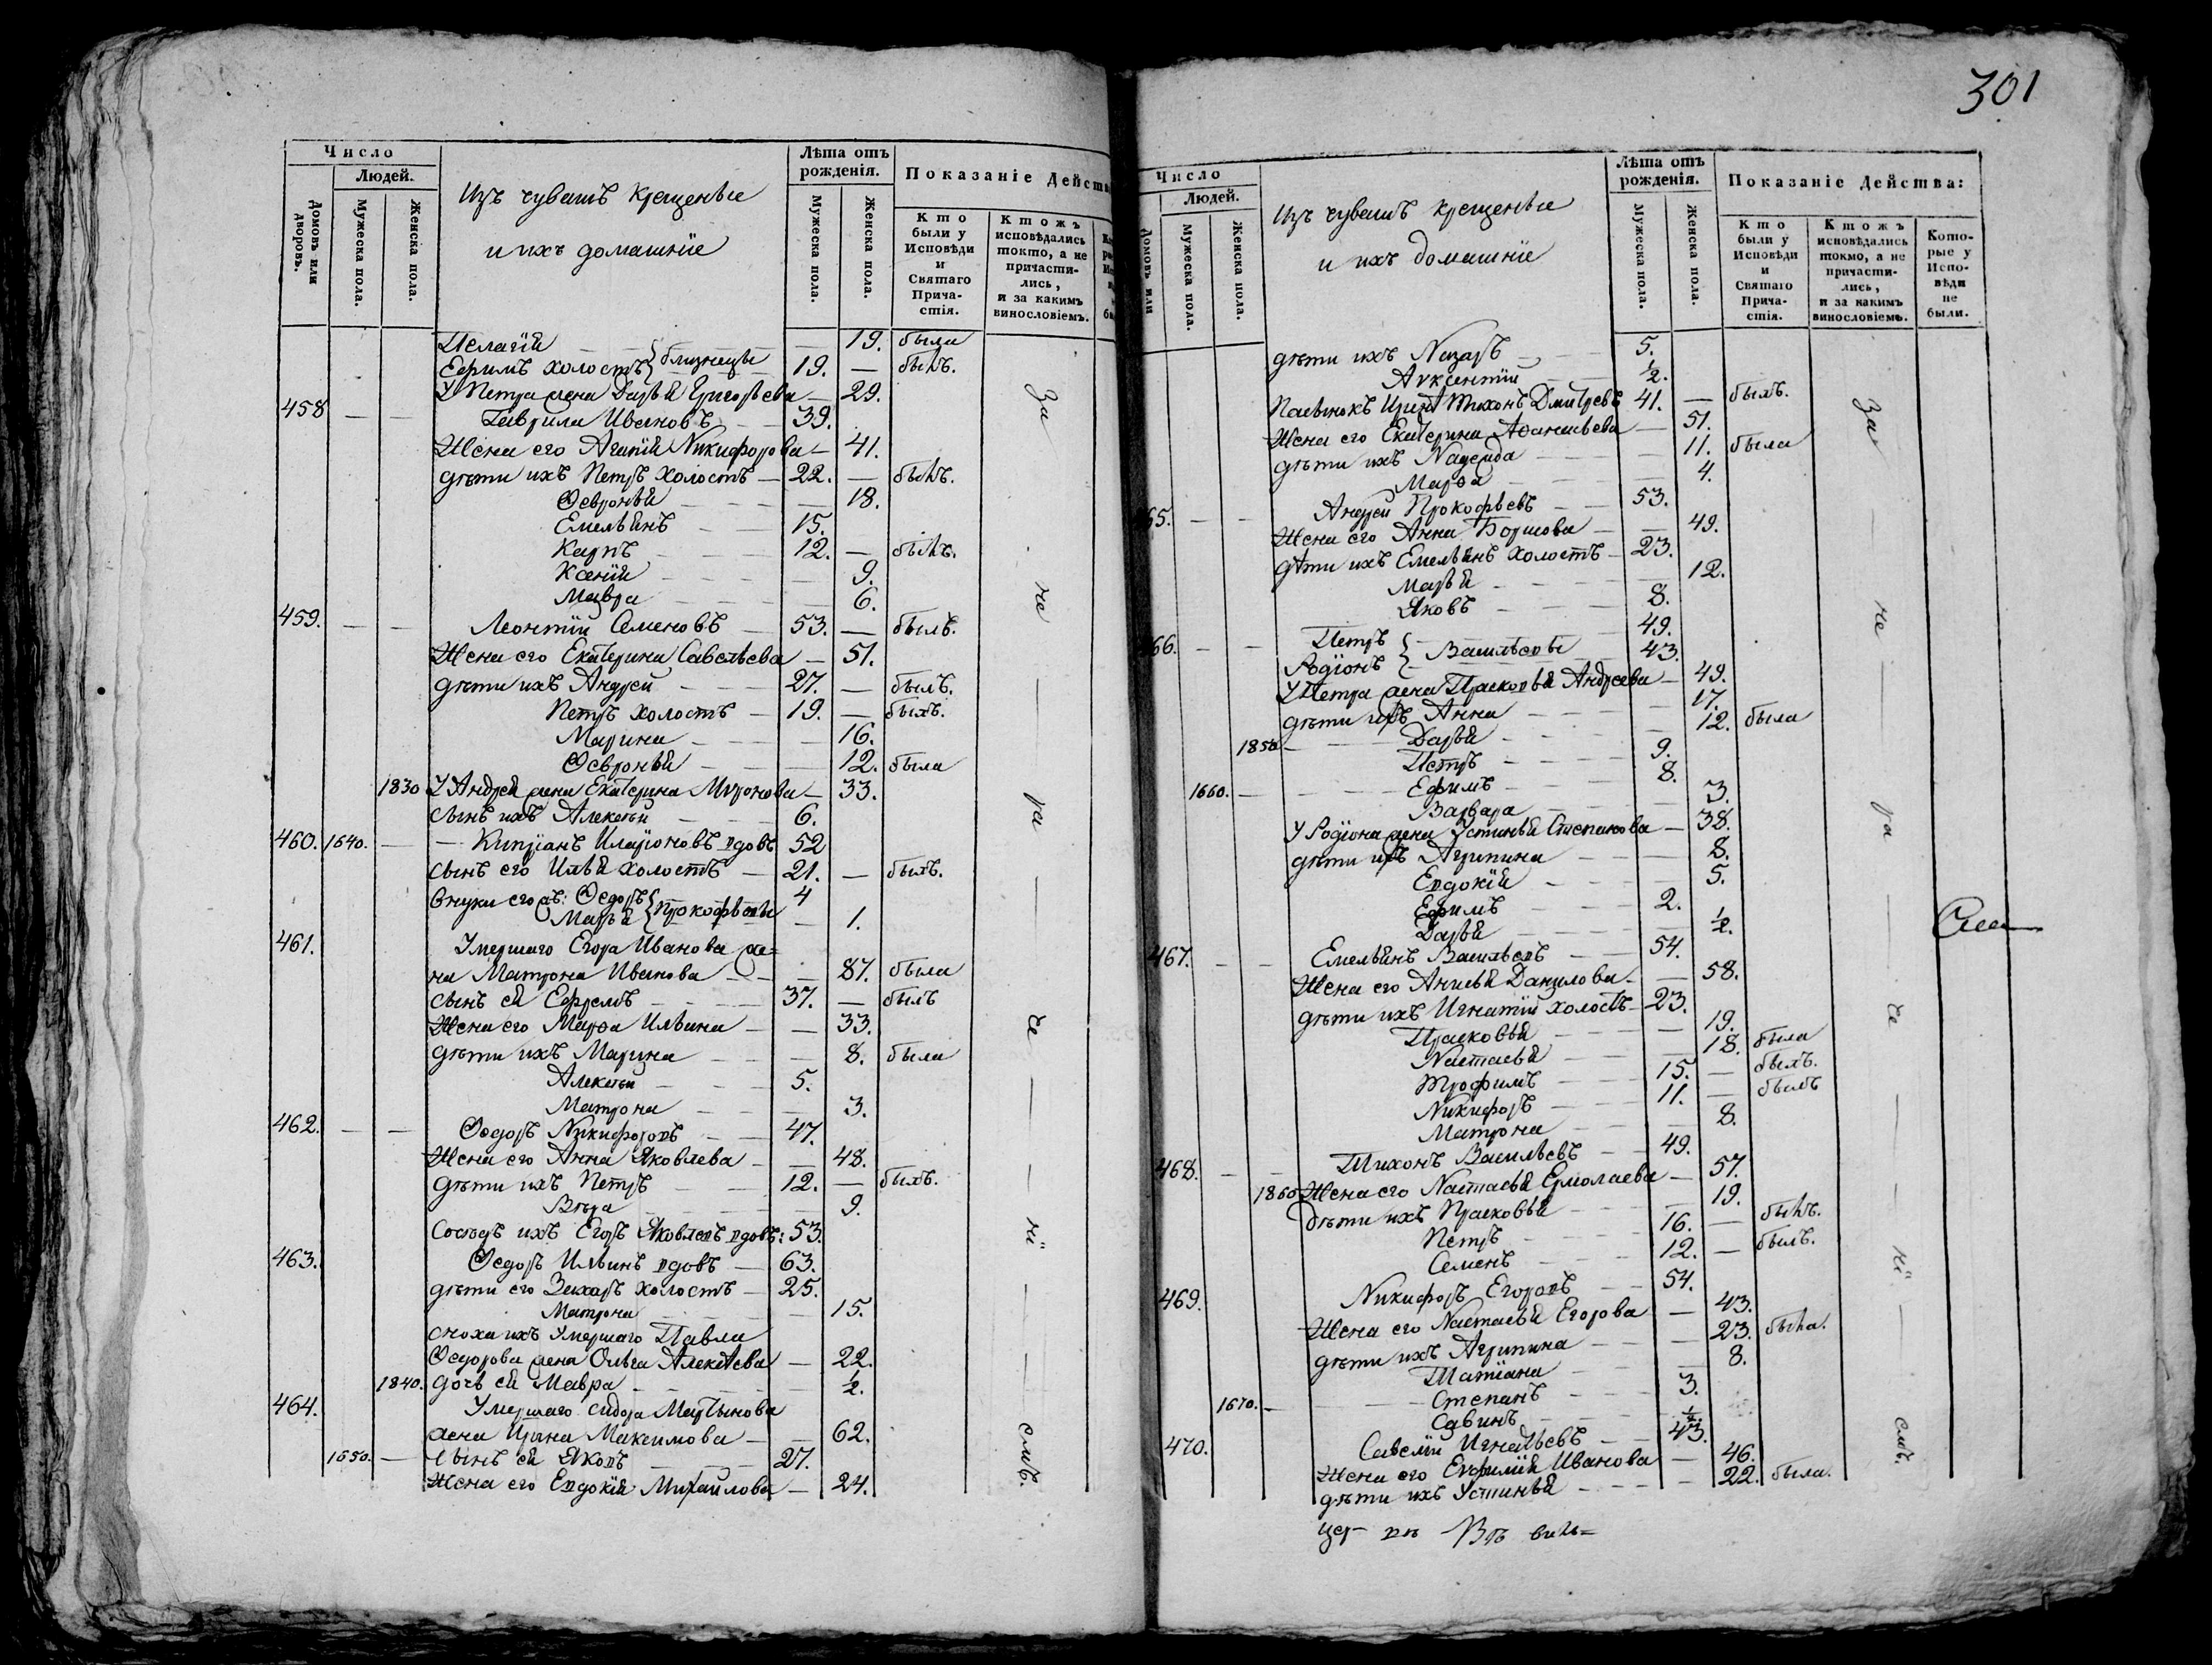 301
Число
Людей.
Домовъ или дворовъ.
Мужеска пола.
Женска пола.
Изъ чувашъ крещеные
и ихъ домашніе
Лѣта отъ рожденія.
Мужеска пола.
Женска пола.
Показаніе Действ
Кто были у Исповѣди и Святаго Прича-стія.
Ктожъ исповѣдались токмо, а не причасти-лись, и за какимъ винословіемъ.
Пелагія 19. была
Ефимъ холостъ близнецы 19. — былъ.
У Петра жена Дарья Григорьева — 29.
458 — — Гаврила Ивановъ — 39.
Жена его Агапія Никифорова — 41.
дѣти ихъ Петръ холостъ — 22. — былъ.
Февронья — 18.
Емельянъ — 15.
Карпъ — 12. — былъ.
Ксенія — 9.
Мавра — 6.
459. — — Леонтій Семеновъ — 53. — былъ.
Жена его Екатерина Савельева — 51.
дѣти ихъ Андрей — 27. — былъ.
Петръ холостъ — 19. — былъ.
Марина — 16.
Февронья — 12. была
1830 У Андрея жена Екатерина Миронова — 33.
сынъ ихъ Алексѣй — 6.
460. 1640. — Кипріанъ Иларіоновъ вдовъ 52
сынъ его Илья холостъ — 21. — былъ.
внуки его: Федоръ 4
Марья Прокофьевы — 1.
461. Умершаго Егора Иванова же=
на Матрона Иванова — 87. была
сынъ ея Ефремъ — 37. — былъ
Жена его Марѳа Ильина — 33.
дѣти ихъ Марина — 8. была
Алексѣй — 5.
Матрона — 3.
462. — — Федоръ Никифоровъ — 47.
Жена его Анна Яковлева — 48.
дѣти ихъ Петръ — 12. — былъ.
Вѣра — 9.
Сосѣдъ ихъ Егоръ Яковлевъ вдовъ: 53.
463. Федоръ Ильинъ вдовъ — 63.
дѣти его Захаръ холостъ — 25.
Матрона — 15.
сноха ихъ умершаго Павла
Федорова жена Ольга Алексѣева — 22.
1840. дочь ея Мавра — 1/2.
464. Умершаго Сидора Мартынова
жена Ирина Максимова — 62.
1650. — сынъ ея Яковъ — 27.
Жена его Евдокія Михайлова — 24.
за не ра че ні емъ.
Число
Людей.
Домовъ или
Мужеска пола.
Женска пола.
Изъ чувашъ крещеные
и ихъ домашніе
Лѣта отъ рожденія.
Мужеска пола.
Женска пола.
Показаніе Действа:
Кто были у Исповѣди и Святаго Прича-стія.
Ктожъ исповѣдались токмо, а не причасти-лись, и за какимъ винословіемъ.
Кото-рые у Испо-вѣди не были.
дѣти ихъ Назаръ — 5.
Авксентій 1/2.
Пасынокъ Тихонъ Дмитревъ 41. — былъ.
Жена его Екатерина Аѳанасьева — 51.
дѣти ихъ Надежда — 11. была
Марѳа — 4.
65. — — Андрей Прокофьевъ — 53.
Жена его Анна Борисова — 49.
дѣти ихъ Емельянъ холостъ — 23.
Марья — 12.
Яковъ — 8.
66. — — Петръ — 49.
Родіонъ Васильевы 43.
У Петра жена Прасковья Андреева — 49.
дѣти ихъ Анна — 17.
1850 — Дарья — 12. была
Петръ — 9.
1660. — Ефимъ — 8.
Варвара — 3.
У Родіона жена Устинья Степанова — 38.
дѣти ихъ Агрипина — 8.
Евдокія — 5.
Ефимъ — 2.
Дарья — 1/2.
467. — — Емельянъ Васильевъ — 54.
Жена его Анисья Данилова — 58.
дѣти ихъ Игнатій холостъ — 23.
Прасковья — 19.
Настасья — 18. была
Трофимъ — 15. — былъ.
Никифоръ — 11. — былъ
Матрона — 8.
468. — — Тихонъ Васильевъ — 49.
1860 Жена его Настасья Ермолаева — 57.
дѣти ихъ Прасковья — 19.
Петръ — 16. — былъ.
Семенъ — 12. — былъ.
469. Никифоръ Егоровъ — 54.
Жена его Настасья Егорова — 43.
дѣти ихъ Агрипина — 23. была.
Татіана — 8.
1670. — Степанъ — 3.
Савинъ
470. Савелій Игнатьевъ — 43.
Жена его Евфимія Иванова — 46.
дѣти ихъ Устинья — 22. была.
за не ра че ні емъ.